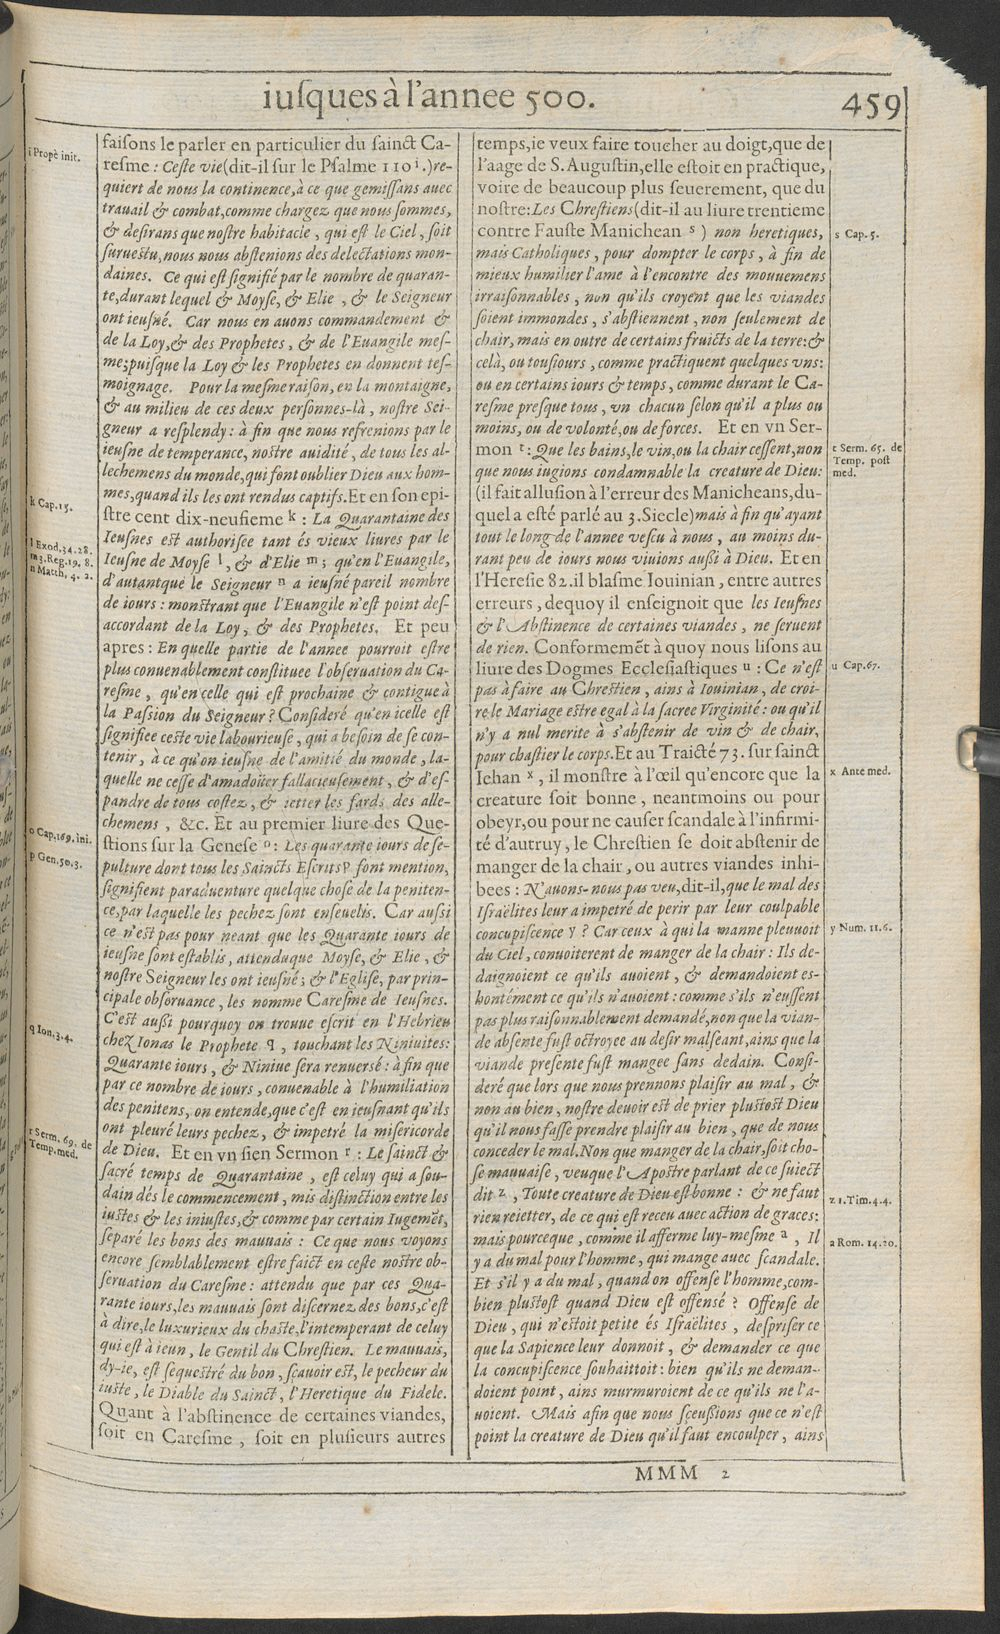 iusques à l'annee 500.
459
faisons le parler en particulier du sainct Ca-
resme : Ceste vie (dit-il sur le Psalme 110 i.) re-
quiert de nous la continence, à ce que gemissans auec
trauail & combat, comme chargez que nous sommes,
& desirans que nostre habitacle, qui est le Ciel, soit
suruestu, nous nous abstenions des delectations mon-
daines. Ce qui est signifié par le nombre de quaran-
te, durant lequel & Moyse, & Elie, & le Seigneur
ont ieusné. Car nous en auons commandement &
de la Loy, & des Prophetes, & de l'Euangile mes-
me; puisque la Loy & les Prophetes en donnent tes-
moignage. Pour la mesme raison, en la montaigne,
& au milieu de ces deux personnes-là, nostre Sei-
gneur a resplendy : à fin que nous refrenions par le
ieusne de temperance, nostre auidité, de tous les al-
lechemens du monde, qui font oublier Dieu aux hom-
mes, quand ils les ont rendus captifs. Et en son epi-
stre cent dix-neufieme k : La Quarantaine des
Ieusnes est authorisee tant és vieux liures par le
Ieusne de Moyse l, & d'Elie m; qu'en l'Euangile,
d'autant que le Seigneur n a ieusné pareil nombre
de iours : monstrant que l'Euangile n'est point des-
accordant de la Loy, & des Prophetes. Et peu
apres : En quelle partie de l'annee pourroit estre
plus conuenablement constituee l'obseruation du Ca-
resme, qu'en celle qui est prochaine & contigue à
la Passion du Seigneur ? Consideré qu'en icelle est
signifiee ceste vie labourieuse, qui a besoin de se con-
tenir, à ce qu'on ieusne de l'amitié du monde, la-
quelle ne cesse d'amadoüer fallacieusement, & d'es-
pandre de tous costez, & ietter les fards des alle-
chemens, &c. Et au premier liure des Que-
stions sur la Genese o : Les quarante iours de se-
pulture dont tous les Saincts Escrits p font mention,
signifient paraduenture quelque chose de la peniten-
ce, par laquelle les pechez sont enseuelis. Car aussi
ce n'est pas pour neant que les Quarante iours de
ieusne sont establis, attenduque Moyse, & Elie, &
nostre Seigneur les ont ieusné; & l'Eglise, par prin-
cipale obseruance, les nomme Caresme de Ieusnes.
C'est aussi pourquoy on trouue escrit en l'Hebrieu
chez Ionas le Prophete q, touchant les Niniuites:
Quarante iours, & Niniue sera renuersé : à fin que
par ce nombre de iours, conuenable à l'humiliation
des penitens, on entende, que c'est en ieusnant qu'ils
ont pleuré leurs pechez, & impetré la misericorde
de Dieu. Et en vn sien Sermon r : Le sainct &
sacré temps de Quarantaine, est celuy qui a sou-
dain dés le commencement, mis distinction entre les
iustes & les iniustes, & comme par certain Iugemẽt,
separé les bons des mauuais : Ce que nous voyons
encore semblablement estre faict en ceste nostre ob-
seruation du Caresme : attendu que par ces Qua-
rante iours, les mauuais sont discernez des bons, c'est
à dire, le luxurieux du chaste, l'intemperant de celuy
qui est à ieun, le Gentil du Chrestien. Le mauuais,
dy-ie, est sequestré du bon, sçauoir est, le pecheur du
iuste, le Diable du Sainct, l'Heretique du Fidele.
Quant à l'abstinence de certaines viandes,
soit en Caresme, soit en plusieurs autres
i Propè init.
k Cap.15.
l Exod.34.28.
m 3.Reg.19.8.
n Matth. 4. 2.
o Cap.169.ini.
p Gen.50.3.
q Ion.3.4.
r Serm. 69. de
Temp.med.
temps, ie veux faire toucher au doigt, que de
l'aage de S. Augustin, elle estoit en practique,
voire de beaucoup plus seuerement, que du
nostre: Les Chrestiens (dit-il au liure trentieme
contre Fauste Manichean s) non heretiques,
mais Catholiques, pour dompter le corps, à fin de
mieux humilier l'ame à l'encontre des mouuemens
irraisonnables, non qu'ils croyent que les viandes
soient immondes, s'abstiennent, non seulement de
chair, mais en outre de certains fruicts de la terre: &
celà, ou tousiours, comme practiquent quelques vns:
ou en certains iours & temps, comme durant le Ca-
resme presque tous, vn chacun selon qu'il a plus ou
moins, ou de volonté, ou de forces. Et en vn Ser-
mon t : Que les bains, le vin, ou la chair cessent, non
que nous iugions condamnable la creature de Dieu:
(il fait allusion à l'erreur des Manicheans, du-
quel a esté parlé au 3. Siecle) mais à fin qu'ayant
tout le long de l'annee vescu à nous, au moins du-
rant peu de iours nous viuions aussi à Dieu. Et en
l'Heresie 82. il blasme Iouinian, entre autres
erreurs, dequoy il enseignoit que les Ieusnes
& l'Abstinence de certaines viandes, ne seruent
de rien. Conformemẽt à quoy nous lisons au
liure des Dogmes Ecclesiastiques u : Ce n'est
pas à faire au Chrestien, ains à Iouinian, de croi-
re le Mariage estre egal à la sacree Virginité : ou qu'il
n'y a nul merite à s'abstenir de vin & de chair,
pour chastier le corps. Et au Traicté 73. sur sainct
Iehan x, il monstre à l'œil qu'encore que la
creature soit bonne, neantmoins ou pour
obeyr, ou pour ne causer scandale à l'infirmi-
té d'autruy, le Chrestien se doit abstenir de
manger de la chair, ou autres viandes inhi-
bees : N'auons-nous pas veu, dit-il, que le mal des
Israëlites leur a impetré de perir par leur coulpable
concupiscence y ? Car ceux à qui la manne pleuuoit
du Ciel, conuoiterent de manger de la chair : Ils de-
daignoient ce qu'ils auoient, & demandoient es-
hontément ce qu'ils n'auoient : comme s'ils n'eussent
pas plus raisonnablement demandé, non que la vian-
de absente fust octroyee au desir malseant, ains que la
viande presente fust mangee sans dedain. Consi-
deré que lors que nous prennons plaisir au mal, &
non au bien, nostre deuoir est de prier plustost Dieu
qu'il nous fasse prendre plaisir au bien, que de nous
conceder le mal. Non que manger de la chair, soit cho-
se mauuaise, veuque l'Apostre parlant de ce suiect
dit z, Toute creature de Dieu est bonne : & ne faut
rien reietter, de ce qui est receu auec action de graces:
mais pourceque, comme il afferme luy-mesme a, Il
y a du mal pour l'homme, qui mange auec scandale.
Et s'il y a du mal, quand on offense l'homme, com-
bien plustost quand Dieu est offensé ? Offense de
Dieu, qui n'estoit petite és Israëlites, despriser ce
que la Sapience leur donnoit, & demander ce que
la concupiscence souhaittoit : bien qu'ils ne deman-
doient point, ains murmuroient de ce qu'ils ne l'a-
uoient. Mais afin que nous sçeussions que ce n'est
point la creature de Dieu qu'il faut encoulper, ains
s Cap.5.
t Serm. 65. de
Temp. post
med.
u Cap.67.
x Ante med.
y Num. 11.6.
z 1.Tim.4.4.
a Rom. 14.20.
MMM 2